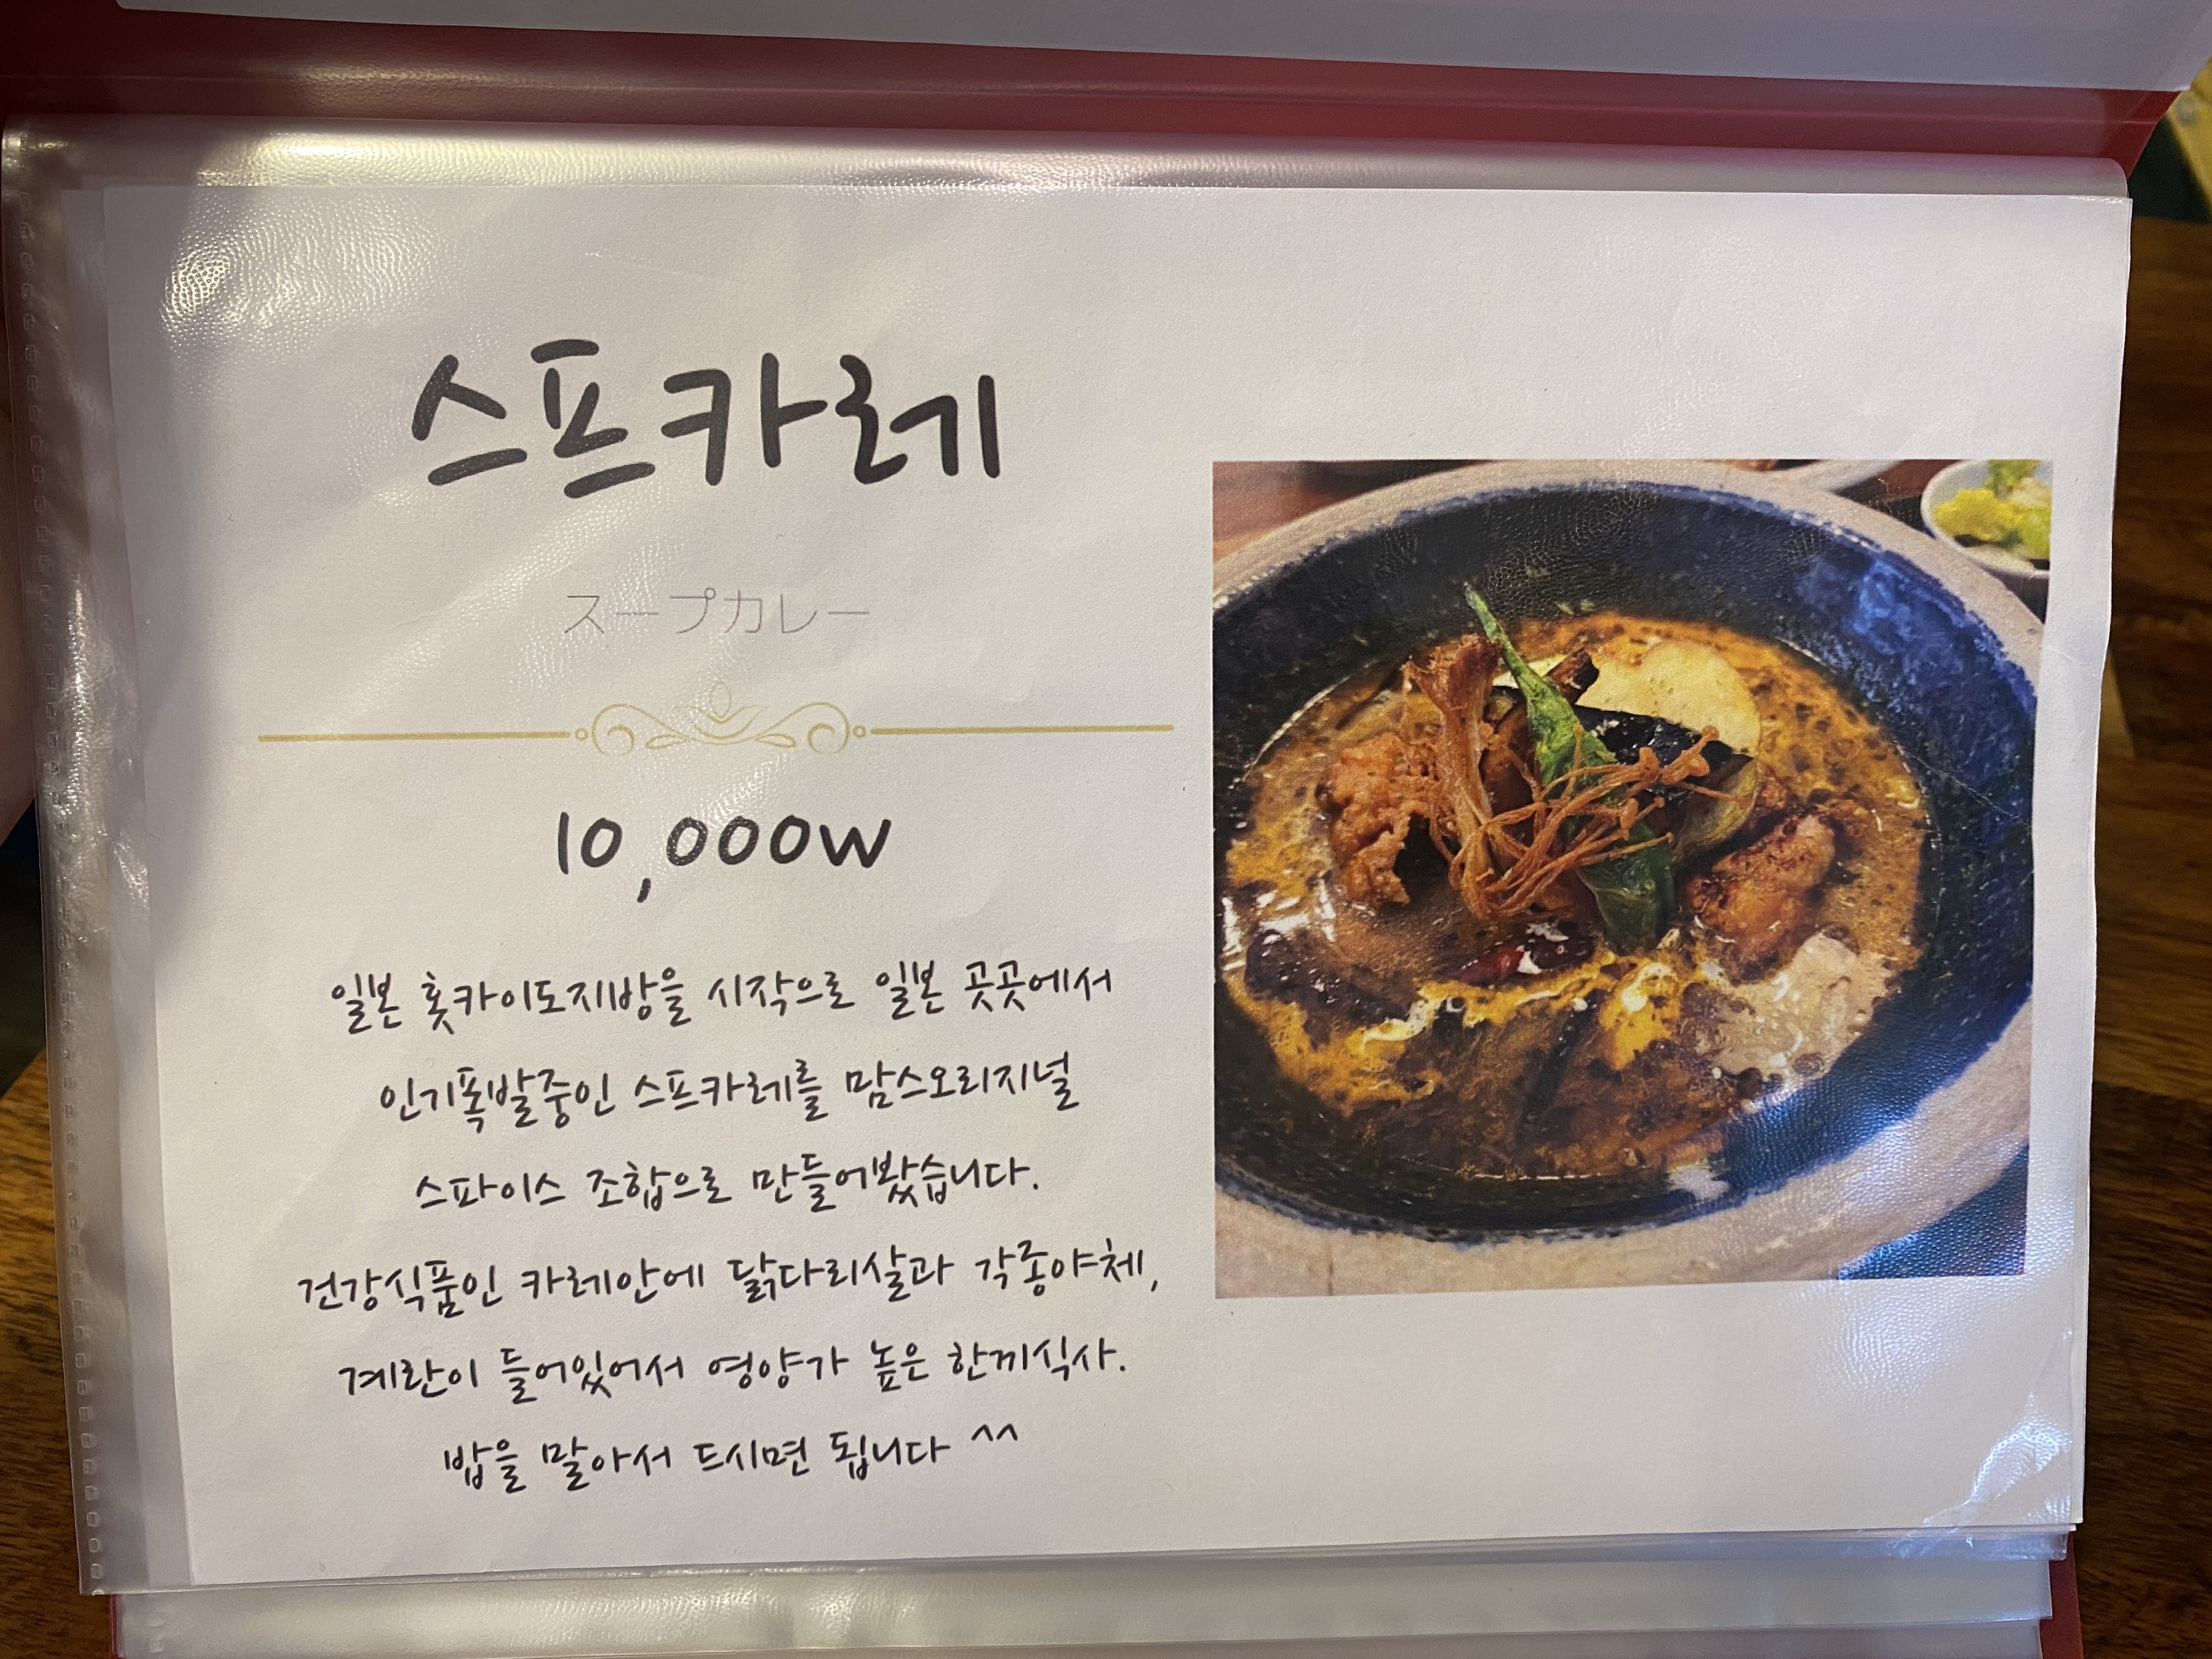 스프카레
スープカレー
10,000w
일본 홋카이도지방을 시작으로 일본 곳곳에서
인기폭발중인 스프카레를 맘스오리지널
스파이스 조합으로 만들어봤습니다.
건강식품인 카레안에 닭다리살과 각종야체,
계란이 들어있어서 영양가 높은 한끼식사.
밥을 말아서 드시면 됩니다 ^^